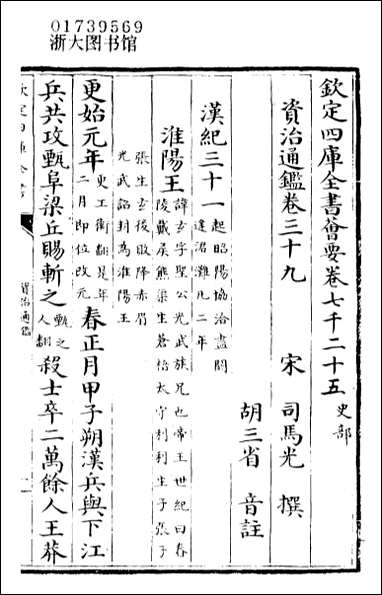 01739569
浙大图书馆
欽定四庫全書薈要卷七千二十五 史部
資治通鑑卷三十九 宋 司馬光 撰
胡三省 音註
漢紀三十一 起昭陽協洽盡閼
逢涒灘凡二年
淮陽王 諱玄字聖公光武族兄也帝王世紀曰春
陵戴侯熊渠生蒼梧太守利利生子張子
張生玄後敗降赤眉
光武詔封為淮陽王
更始元年 更工衡翻是年
二月即位改元 春正月甲子朔漢兵與下江
兵共攻甄阜梁丘賜斬之 甄之
人翻 殺士卒二萬餘人王莽
欽定四庫全書
資治通鑑